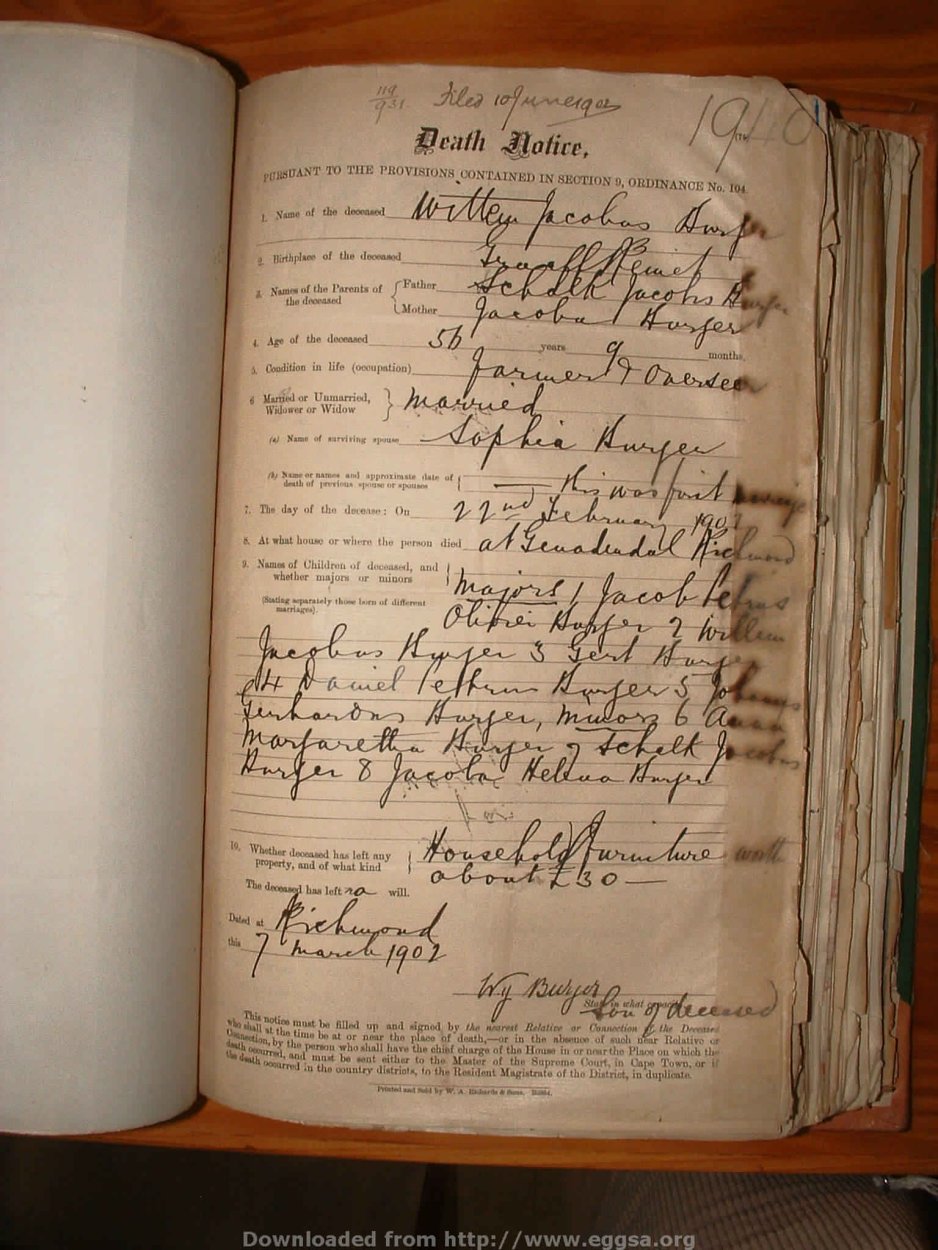 119
931 Filed 10 June 1902
1940
Death Notice,
PURSUANT TO THE PROVISIONS CONTAINED IN SECTION 9, ORDINANCE No. 104
1. Name of the deceased Willem Jacobus Burger
2. Birthplace of the deceased Graaff Reinet
3. Names of the Parents of the deceased { Father Schalk Jacobs Burger
Mother Jacoba Burger
4. Age of the deceased 56 years 9 months.
5. Condition in life (occupation) farmer & Overseer
6 Married or Unmarried, Widower or Widow } married
(a) Name of surviving spouse Sophia Burger
(b) Name or names and approximate date of death of previous spouse or spouses { — this was first
7. The day of the decease: On 22nd February 1902
8. At what house or where the person died at Genadendal Richmond
9. Names of Children of deceased, and whether majors or minors
(Stating separately those born of different marriages).
Majors 1 Jacob Petrus
Olivier Burger 2 Willem
Jacobus Burger 3 Gert Burger
4 Daniel Petrus Burger 5 Johannes
Gerhardus Burger, minors 6 Anna
Margaretha Burger 7 Schalk Jacobus
Burger 8 Jacoba Helena Burger
10. Whether deceased has left any property, and of what kind { Household furniture worth
about £30 —
The deceased has left no will.
Dated at Richmond
this 7 March 1902
Wj Burger
State in what capacity
Son of deceased
This notice must be filled up and signed by the nearest Relative or Connection of the Deceased
who shall at the time be at or near the place of death,—or in the absence of such near Relative or
Connection, by the person who shall have the chief charge of the House in or near the Place on which the
death occurred, and must be sent either to the Master of the Supreme Court, in Cape Town, or if
the death occurred in the country districts, to the Resident Magistrate of the District, in duplicate.
Printed and Sold by W. A. Richards & Sons.
Downloaded from http://www.eggsa.org